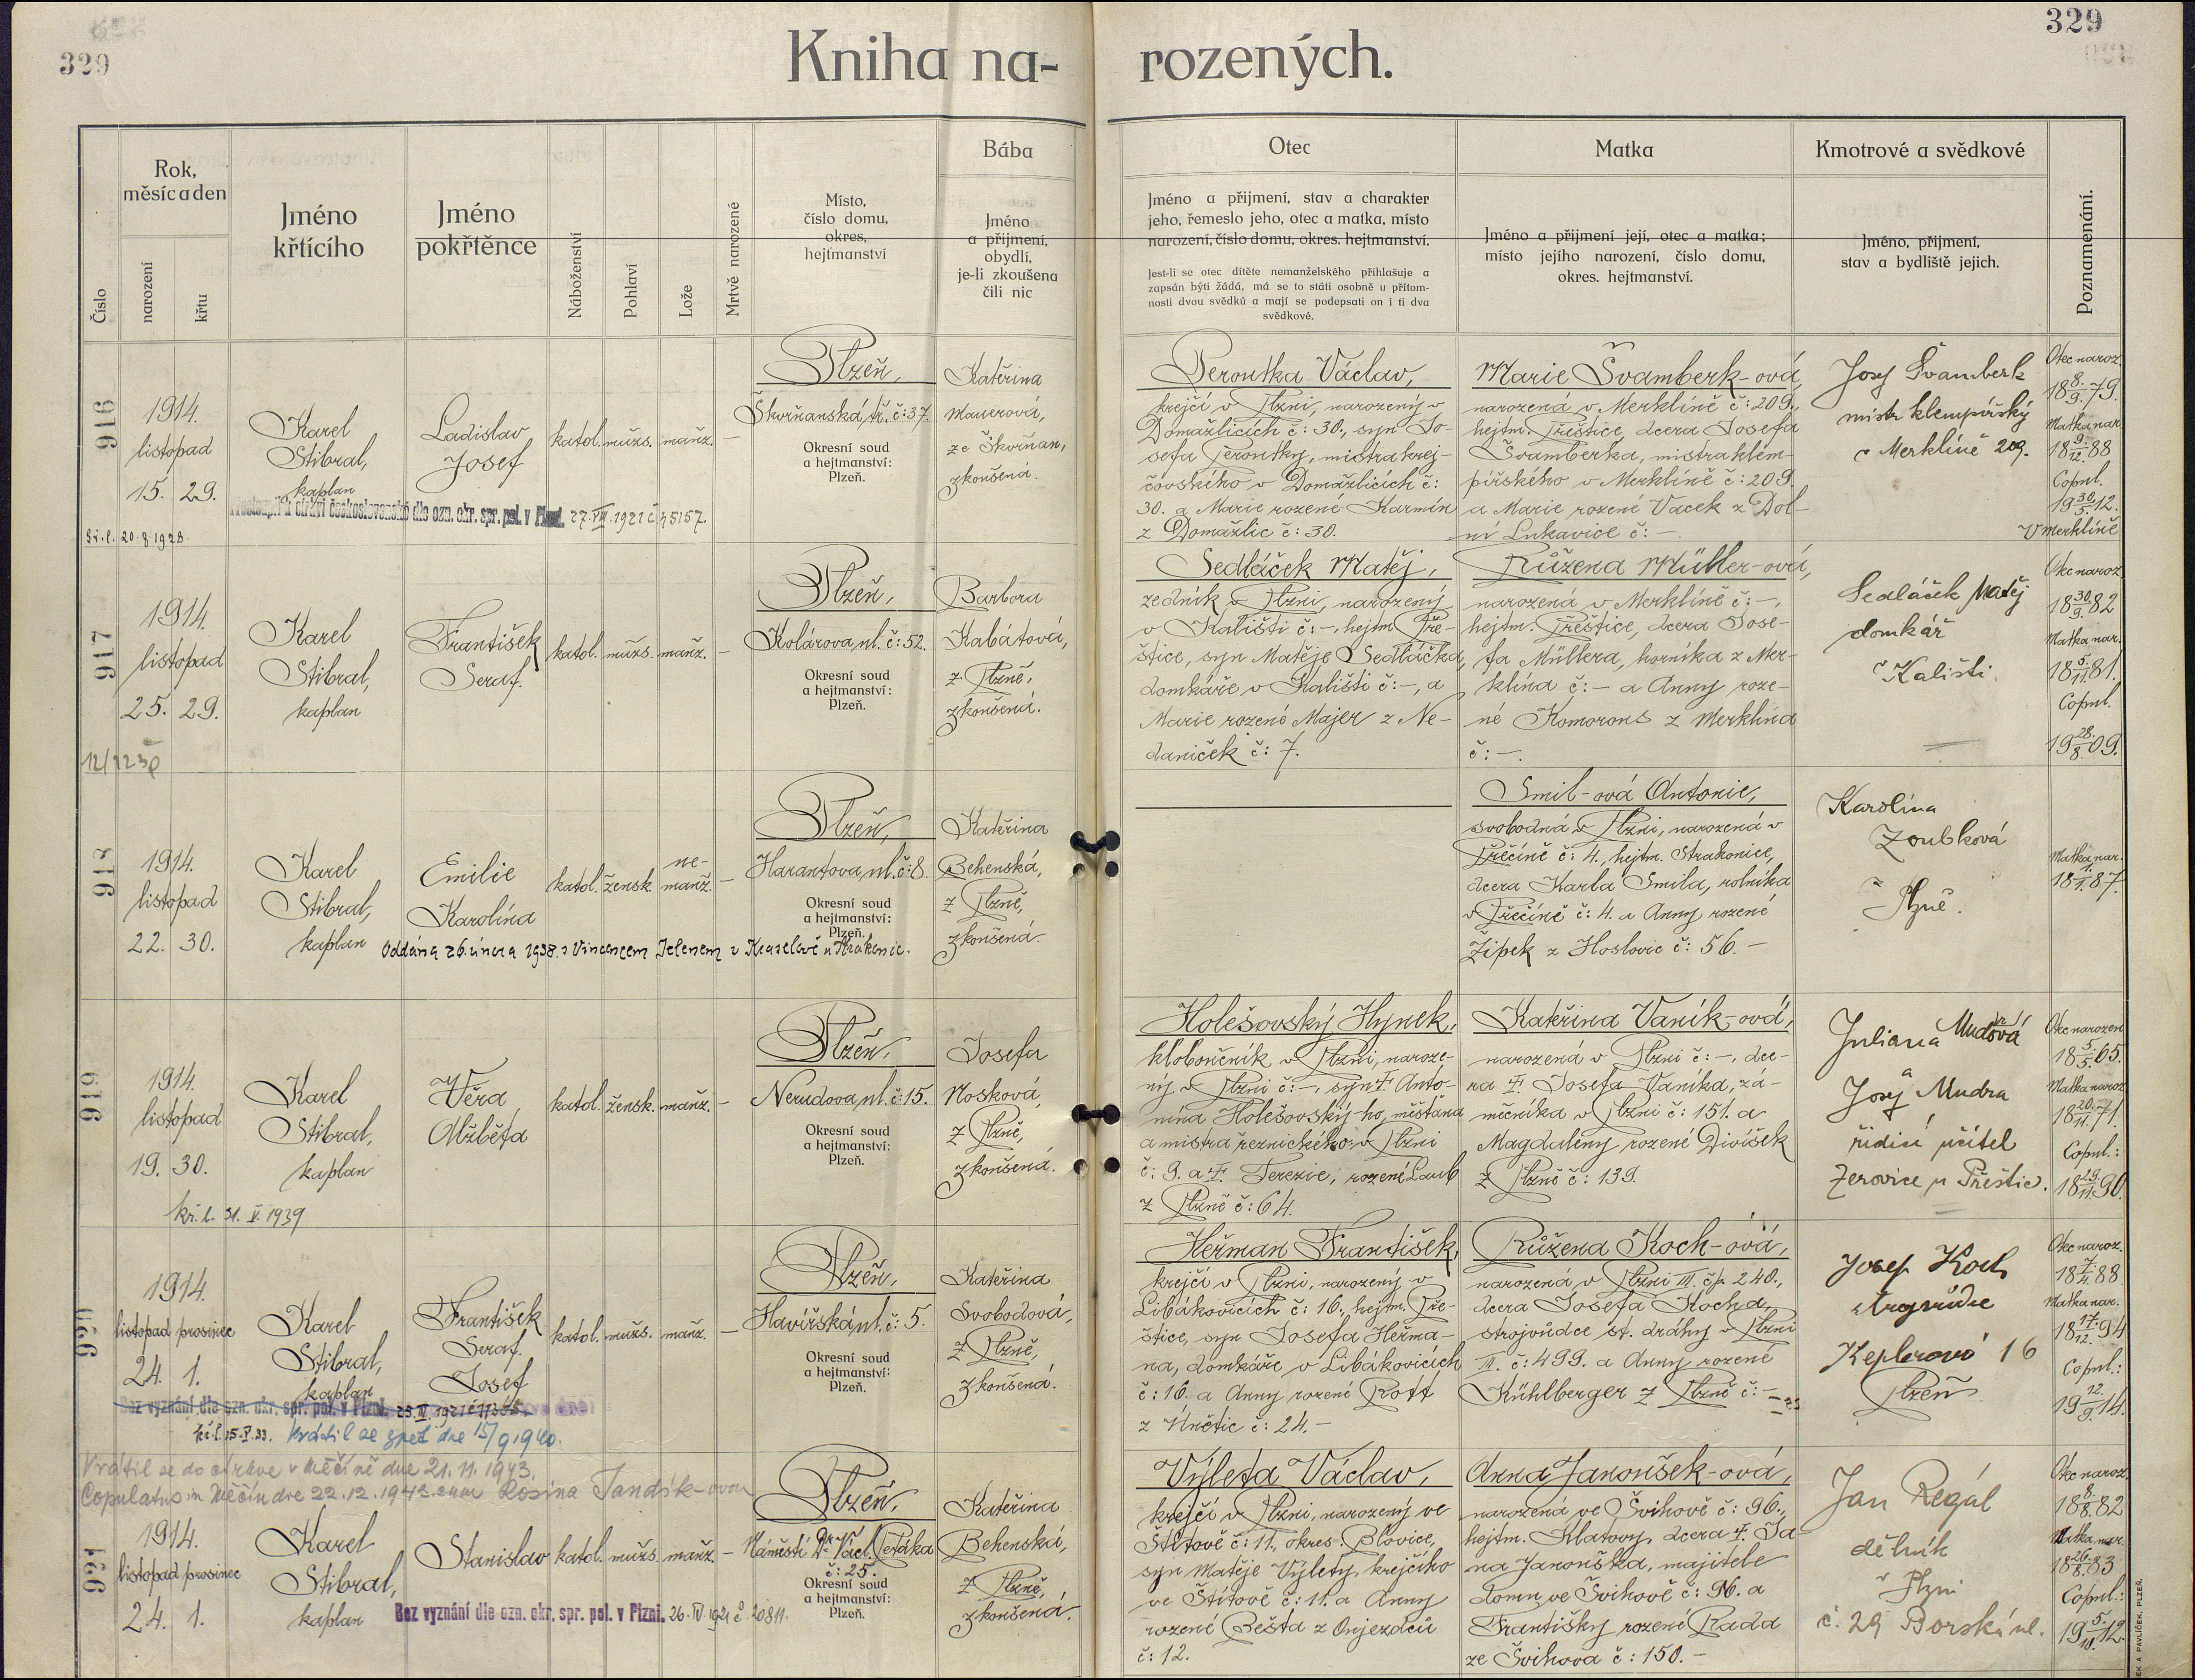 329
329
Kniha na-
rozených.
Číslo
Rok,
měsíc a den
narození
křtu
Jméno
křtícího
Jméno
pokřtěnce
Náboženství
Pohlaví
Lože
Mrtvě narozené
Místo,
číslo domu,
okres,
hejtmanství
Bába
Jméno
a přijmení,
obydlí,
je-li zkoušena
čili nic
Otec
Jméno a přijmení, stav a charakter
jeho, řemeslo jeho, otec a matka, místo
narození, číslo domu, okres. hejtmanství.
Jest-li se otec dítěte nemanželského přihlašuje a
zapsán býti žádá, má se to státi osobně u přítom-
nosti dvou svědků a mají se podepsati on i ti dva
svědkové.
Matka
Jméno a přijmení její, otec a matka;
místo jejího narození, číslo domu,
okres. hejtmanství.
Kmotrové a svědkové
Jméno, přijmení,
stav a bydliště jejich.
Poznamenání.
916
1914.
listopad
15. 29.
Karel
Stibral,
kaplan
Ladislav
Josef
katol.
mužs.
manž.
—
Plzeň,
Škvrňanská tř. č: 37.
Okresní soud
a hejtmanství:
Plzeň.
Kateřina
Mauerová,
ze Škvrňan,
zkoušená.
československé dle ozn. okr. spr. pol. v Plzni. 27.VIII.1921 č 45157.
kř. l. 20.8.1928.
Peroutka Václav,
krejčí v Plzni, narozený v
Domažlicích č: 30., syn Jo-
sefa Peroutky, mistra krej-
čovského v Domažlicích č:
30. a Marie rozené Karmín
z Domažlic č: 30.
Marie Švamberk-ová,
narozená v Merklíně č: 209.,
hejtm. Přeštice, dcera Josefa
Švamberka, mistra klem-
pířského v Merklíně č: 209.
a Marie rozené Vacek z Dol-
ní Lukavice č: —.
Josef Švamberk
mistr klempířský
v Merklíně 209.
Otec naroz.
18 8./9. 79.
Matka nar.
18 9./12. 88
Copul.
19 30./5. 12.
V Merklíně
917
1914.
listopad
25. 29.
Karel
Stibral,
kaplan
František
Seraf.
katol.
mužs.
manž.
—
Plzeň,
Kolárova ul. č: 52.
Okresní soud
a hejtmanství:
Plzeň.
Barbora
Kabátová,
z Plzně,
zkoušená.
Sedláček Matěj,
zedník v Plzni, narozený
v Kališti č: —, hejtm. Pře-
štice, syn Matěje Sedláčka,
domkáře v Kališti č: —, a
Marie rozené Majer z Ne-
daniček č: 7.
Růžena Müller-ová,
narozená v Merklíně č: —,
hejtm. Přeštice, dcera Jose-
fa Müllera, horníka z Mer-
klína č: — a Anny roze-
né Komorous z Merklína
č: —.
Sedláček Matěj
domkář
v Kališti.
Otec naroz.
18 30./9. 82
Matka nar.
18 5./11. 81.
Copul.
19 28./8. 09.
918
1914.
listopad
22. 30.
Karel
Stibral,
kaplan
Emilie
Karolína
katol.
žensk.
ne-
manž.
—
Plzeň,
Harantova ul. č: 8.
Okresní soud
a hejtmanství:
Plzeň.
Kateřina
Behenská,
z Plzně,
zkoušená.
Oddána 26. února 1938. s Vincencem Jelenem v Kraselově u Strakonic.
Smil-ová Antonie,
svobodná v Plzni, narozená v
Předčíně č: 4., hejtm. Strakonice,
dcera Karla Smila, rolníka
č: 4. a Anny rozené
Žípek z Hoslovic č: 56. —
Karolína
Zoubková
v Plzně.
Matka nar.
18 1./1. 87.
919
1914.
listopad
19. 30.
Karel
Stibral,
kaplan
Věra
Alžběta
katol.
žensk.
manž.
—
Plzeň,
Nerudova ul. č: 15.
Okresní soud
a hejtmanství:
Plzeň.
Josefa
Nosková,
z Plzně,
zkoušená.
kř. l. 31. V. 1939
Holešovský Hynek,
kloboučník v Plzni, naroze-
ný v Plzni č: —, syn † Anto-
nína Holešovský-ho, měšťana
a mistra řeznického v Plzni
č: 9. a †. Terezie, rozené Laub
z Plzně č: 64.
Kateřina Vaník-ová,
narozená v Plzni č: —, dce-
ra †. Josefa Vaníka, zá-
mečníka v Plzni č: 151. a
Magdaleny rozené Divíšek
z Plzně č: 139.
Juliana Mudrová
a
Josef Mudra
řídící učitel
Zerovice u Přeštic.
Otec narozen
18 5./5. 65.
Matka naroz.
18 20./11. 71.
Copul.:
18 29./11. 90.
920
1914.
listopad prosinec
24. 1.
Karel
Stibral,
kaplan
František
Seraf.
Josef
katol.
mužs.
manž.
—
Plzeň,
Havířská ul. č: 5.
Okresní soud
a hejtmanství:
Plzeň.
Kateřina
Svobodová,
z Plzně,
zkoušená.
Bez vyznání dle ozn. okr. spr. pol. v Plzni.
kř. l. 15.I.33. Vrátil se zpět dne 15/9 1940.
Vrátil se do církve v Měčíně dne 21.11.1943.
Copulatus in Měčín die 22.12.1943. cum Rosina Tandík-ovou
Heřman František,
krejčí v Plzni, narozený v
Libákovicích č: 16., hejtm. Pře-
štice, syn Josefa Heřma-
na, domkáře v Libákovicích
č: 16. a Anny rozené Rott
z Únětic č: 24. —
Růžena Koch-ová,
narozená v Plzni III. čp. 240.,
dcera Josefa Kocha,
strojvůdce st. dráhy v Plzni
III. č: 499. a Anny rozené
Kühlberger z Plzně č: —
Josef Koch
strojvůdce
Keplerova 16
Plzeň
Otec naroz.
18 7./4. 88
Matka nar.
18 17./12. 94
Copul.:
19 12./9. 14.
921
1914.
listopad prosinec
24. 1.
Karel
Stibral,
kaplan
Stanislav
katol.
mužs.
manž.
—
Plzeň,
Náměstí Dr. Václ. Peťáka
č: 25.
Okresní soud
a hejtmanství:
Plzeň.
Kateřina
Behenská,
z Plzně,
zkoušená.
Bez vyznání dle ozn. okr. spr. pol. v Plzni. 26.IV.1921 č 20811.
Výleta Václav,
krejčí v Plzni, narozený ve
Štítově č: 11., okres. Blovice,
syn Matěje Výlety, krejčího
ve Štítově č: 11. a Anny
rozené Bešta z Oujezdců
č: 12.
Anna Janoušek-ová,
narozená ve Švihově č: 96.,
hejtm. Klatovy, dcera †. Ja-
na Janouška, majitele
domu ve Švihově č: 96. a
Františky rozené Rada
ze Švihova č: 150. —
Jan Regál
dělník
v Plzni
č. 29 Borská ul.
Otec naroz.
18 8./8. 82
Matka nar.
18 26./8. 83
Copul.:
19 5./11. 12.
EK A PAVLÍČEK, PLZEŇ.